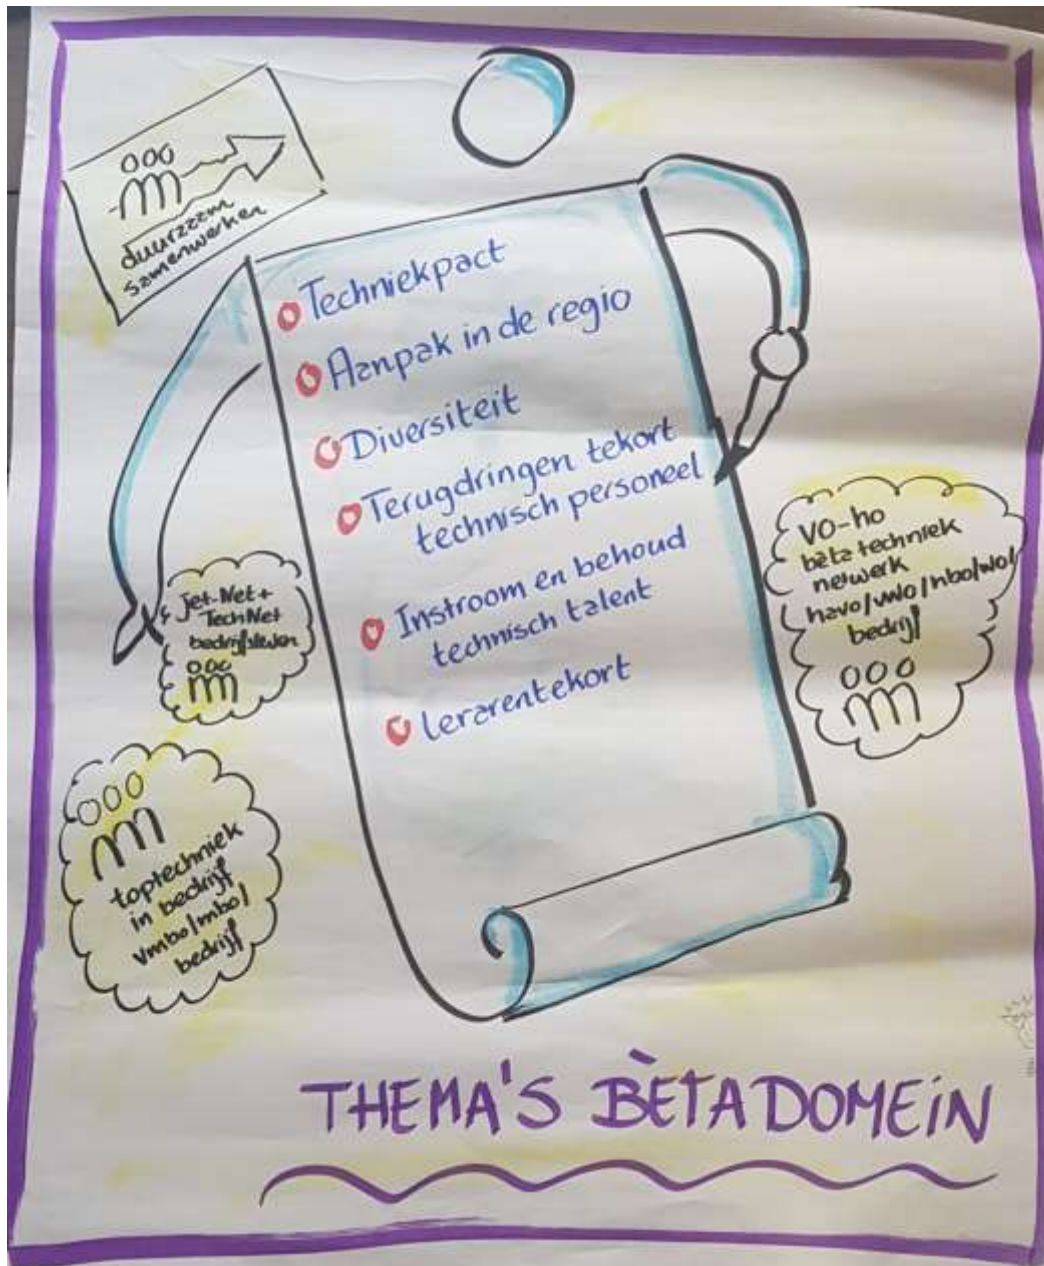 duurzaam
samenwerken
Techniekpact
Aanpak in de regio
Diversiteit
Terugdringen tekort
technisch personeel
Instroom en behoud
technisch talent
lerarentekort
Jet-Net +
TechNet
VO-ho
bèta techniek
netwerk
havo/vwo/hbo/wo/
bedrijf
toptechniek
in bedrijf
vmbo/mbo/
bedrijf
THEMA'S BÈTADOMEiN